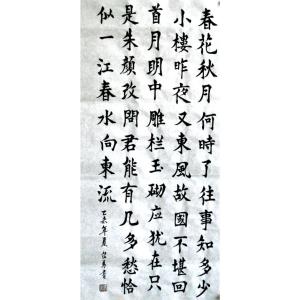 春花秋月何時了往事知多少
小樓昨夜又東風故國不堪回
首月明中雕栏玉砌应犹在只
是朱颜改問君能有几多愁恰
似一江春水向東流
乙未年夏